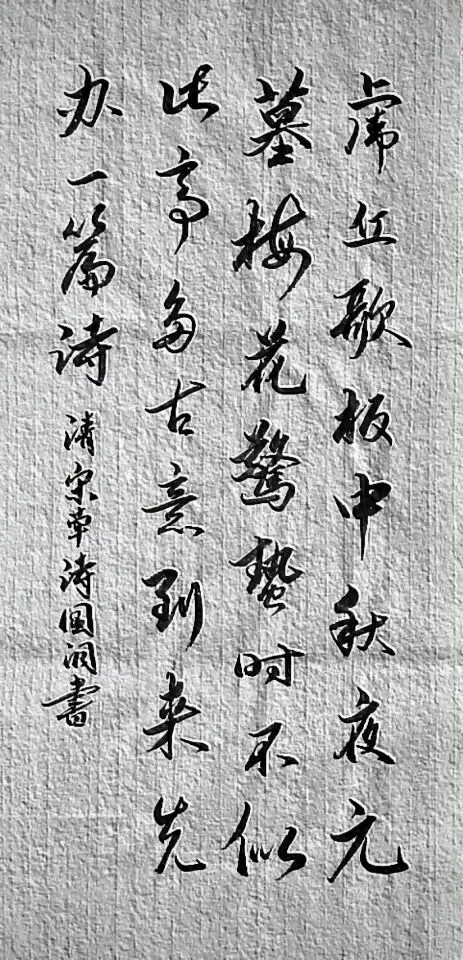 虎丘歌板中秋夜元
墓梅花驚蛰时不似
此亭多古意到来先
办一篇诗 清宋荦诗国书